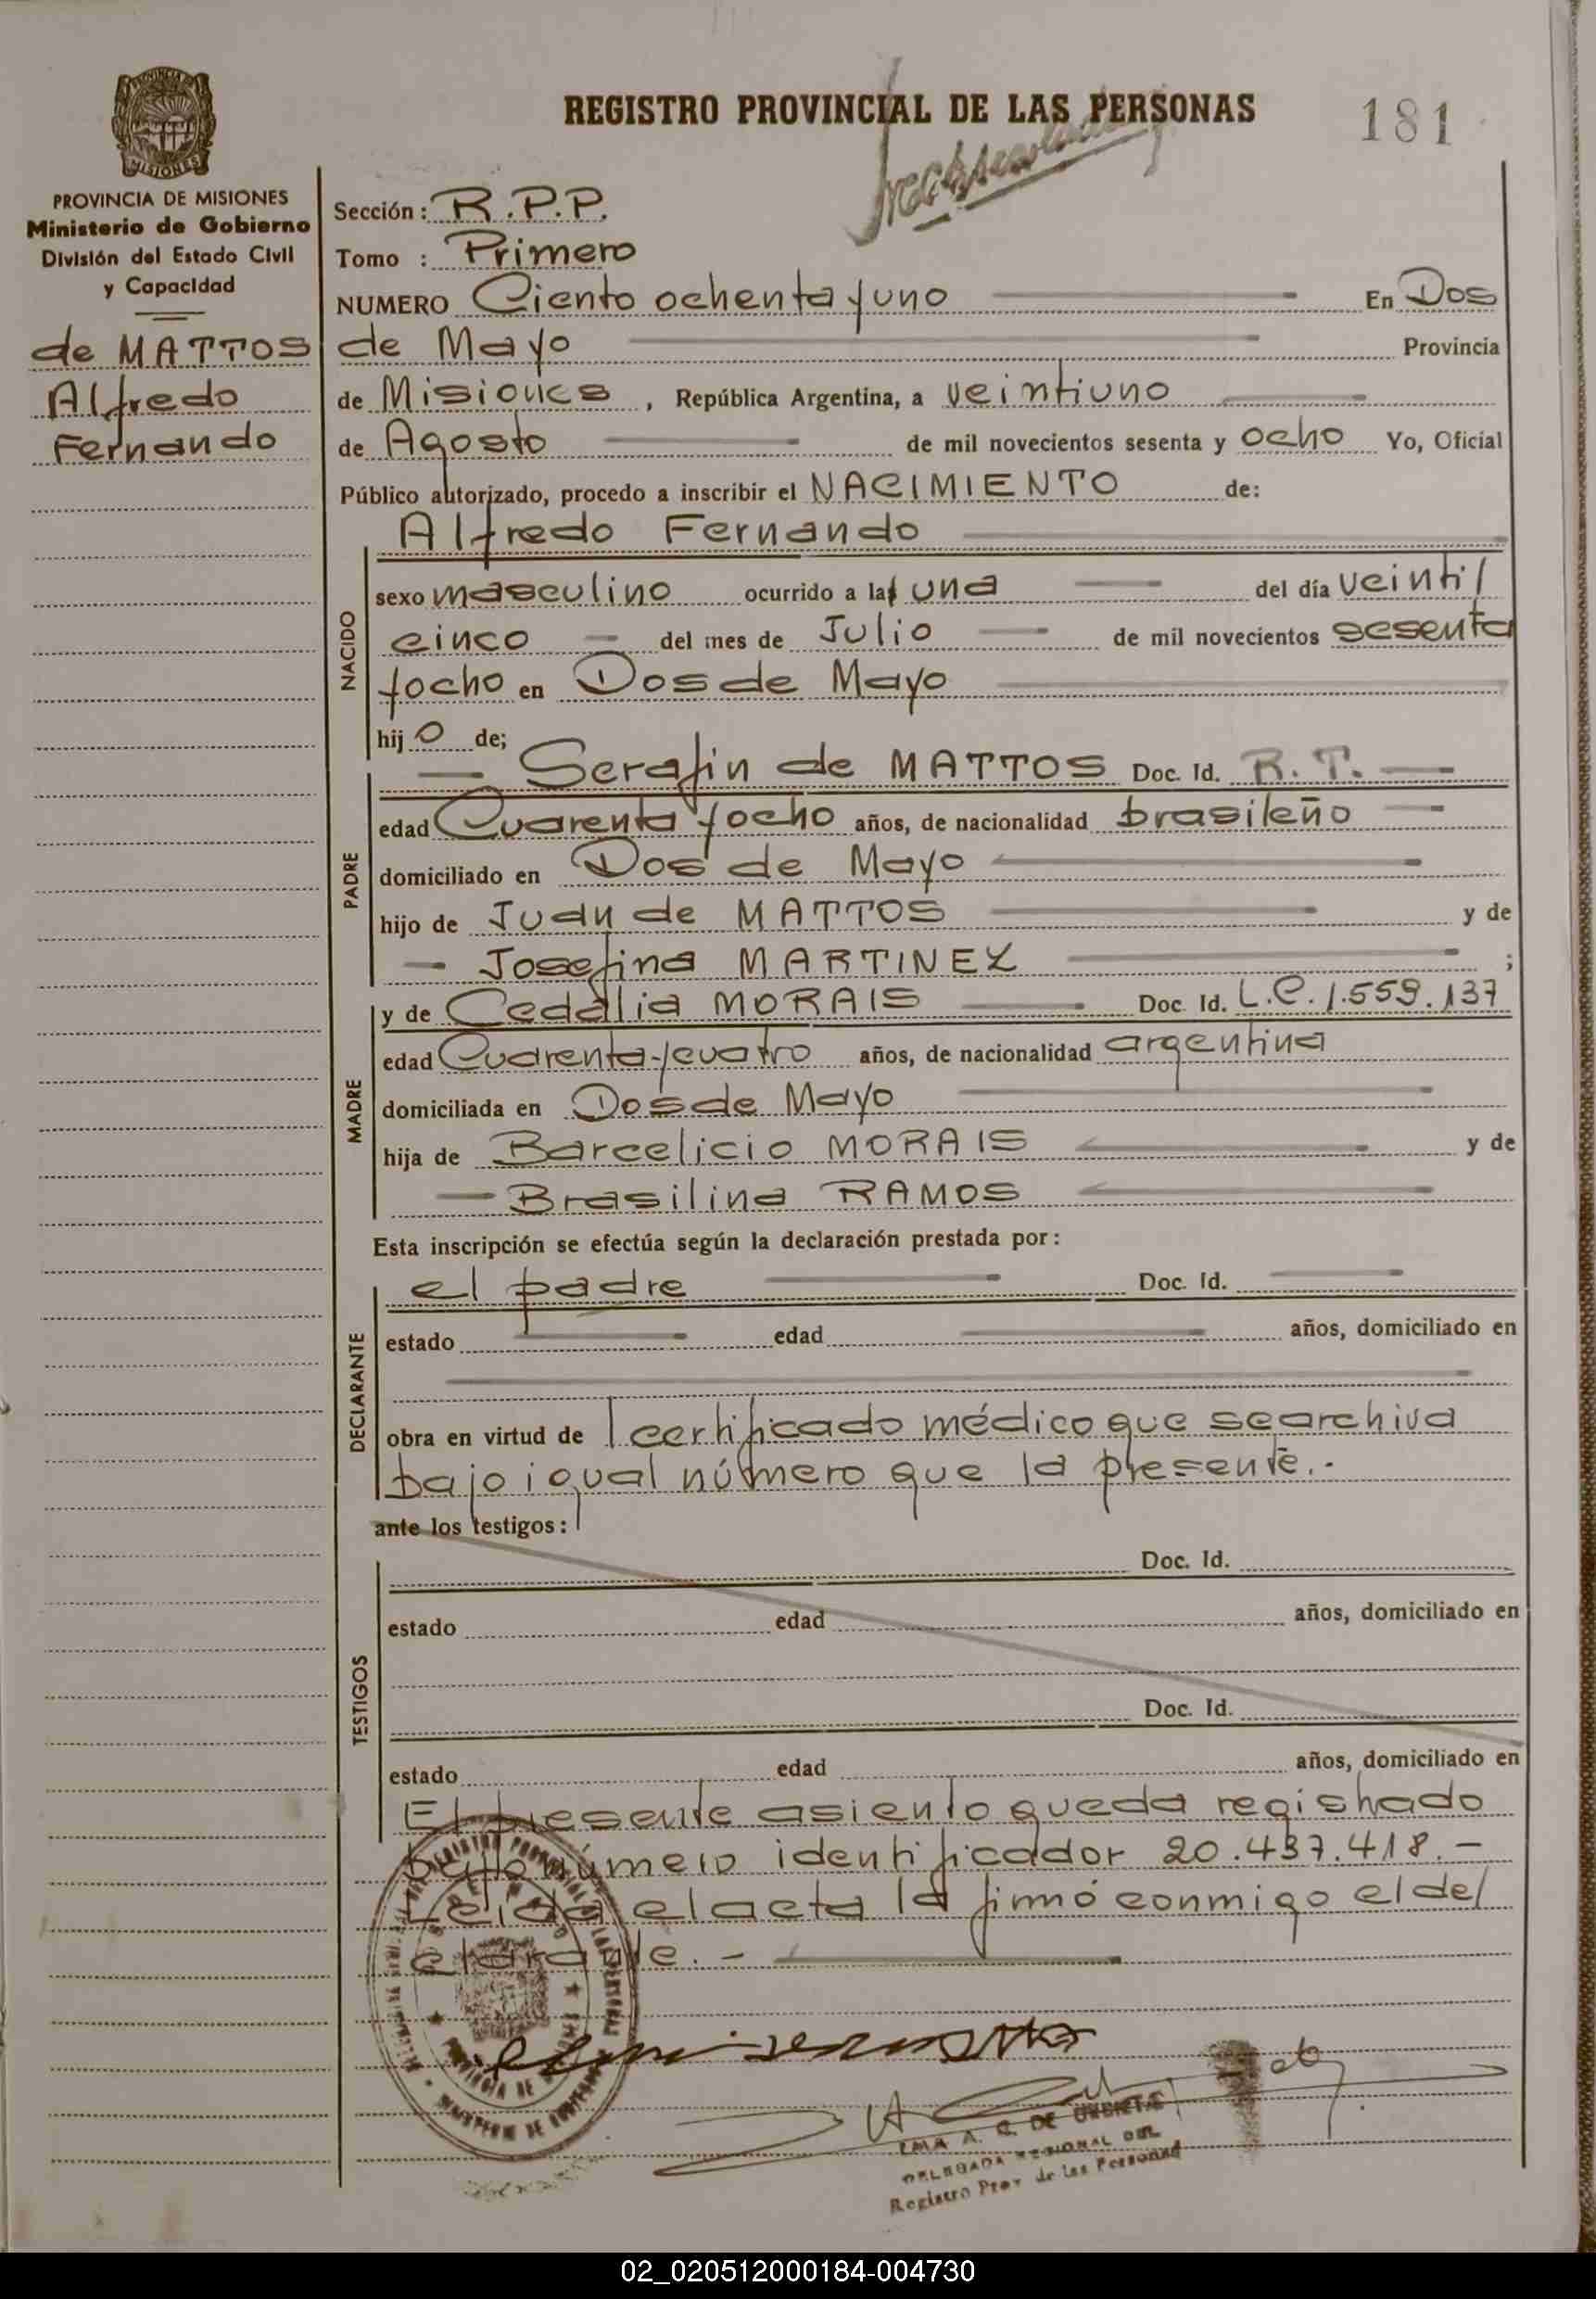 REGISTRO PROVINCIAL DE LAS PERSONAS
181
PROVINCIA DE
MISIONES
PROVINCIA DE MISIONES
Ministerio de Gobierno
División del Estado Civil
y Capacidad
de MATTOS
Alfredo
Fernando
Sección: R.P.P.
Tomo : Primero
NUMERO Ciento ochenta y uno En Dos
de Mayo Provincia
de Misiones, República Argentina, a veintiuno
de Agosto de mil novecientos sesenta y ocho Yo, Oficial
Público autorizado, procedo a inscribir el NACIMIENTO de:
NACIDO
Alfredo Fernando
sexo masculino ocurrido a la una del día veinti
cinco del mes de Julio de mil novecientos sesenta
y ocho en Dos de Mayo
hijo de;
PADRE
Serafin de MATTOS Doc. Id. R. T.
edad Cuarenta y ocho años, de nacionalidad brasileño
domiciliado en Dos de Mayo
hijo de Juan de MATTOS y de
Josefina MARTINEZ ;
MADRE
y de Cedalia MORAIS Doc. Id. L.C. 1.559.137
edad Cuarenta y cuatro años, de nacionalidad argentina
domiciliada en Dos de Mayo
hija de Barcelicio MORAIS y de
Brasilina RAMOS
Esta inscripción se efectúa según la declaración prestada por:
DECLARANTE
el padre Doc. Id.
estado edad años, domiciliado en
obra en virtud de certificado médico que se archiva
bajo igual número que la presente.-
ante los testigos:
TESTIGOS
Doc. Id.
estado edad años, domiciliado en
Doc. Id.
estado edad años, domiciliado en
El presente asiento queda registrado
bajo número identificador 20.437.418.-
Leida el acta la firmó conmigo el de
clarante.-
DELEGADA REGIONAL DEL
Registro Prov. de las Personas
02_020512000184-004730